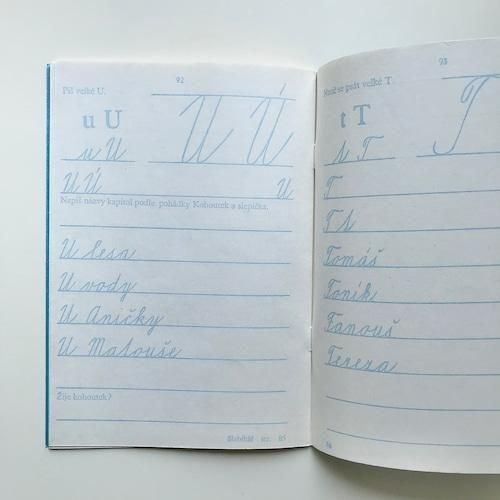 92
Piš velké U.
u U
U Ú
u U
U Ú
U
Napiš názvy kapitol podle pohádky Kohoutek a slepička.
U lesa
U vody
U Aničky
U Matouše
Žije kohoutek?
Slabikář str. 85
93
se psát velké T.
t T
T
t T
T
T t
Tomáš
Toník
Fanouš
Tereza